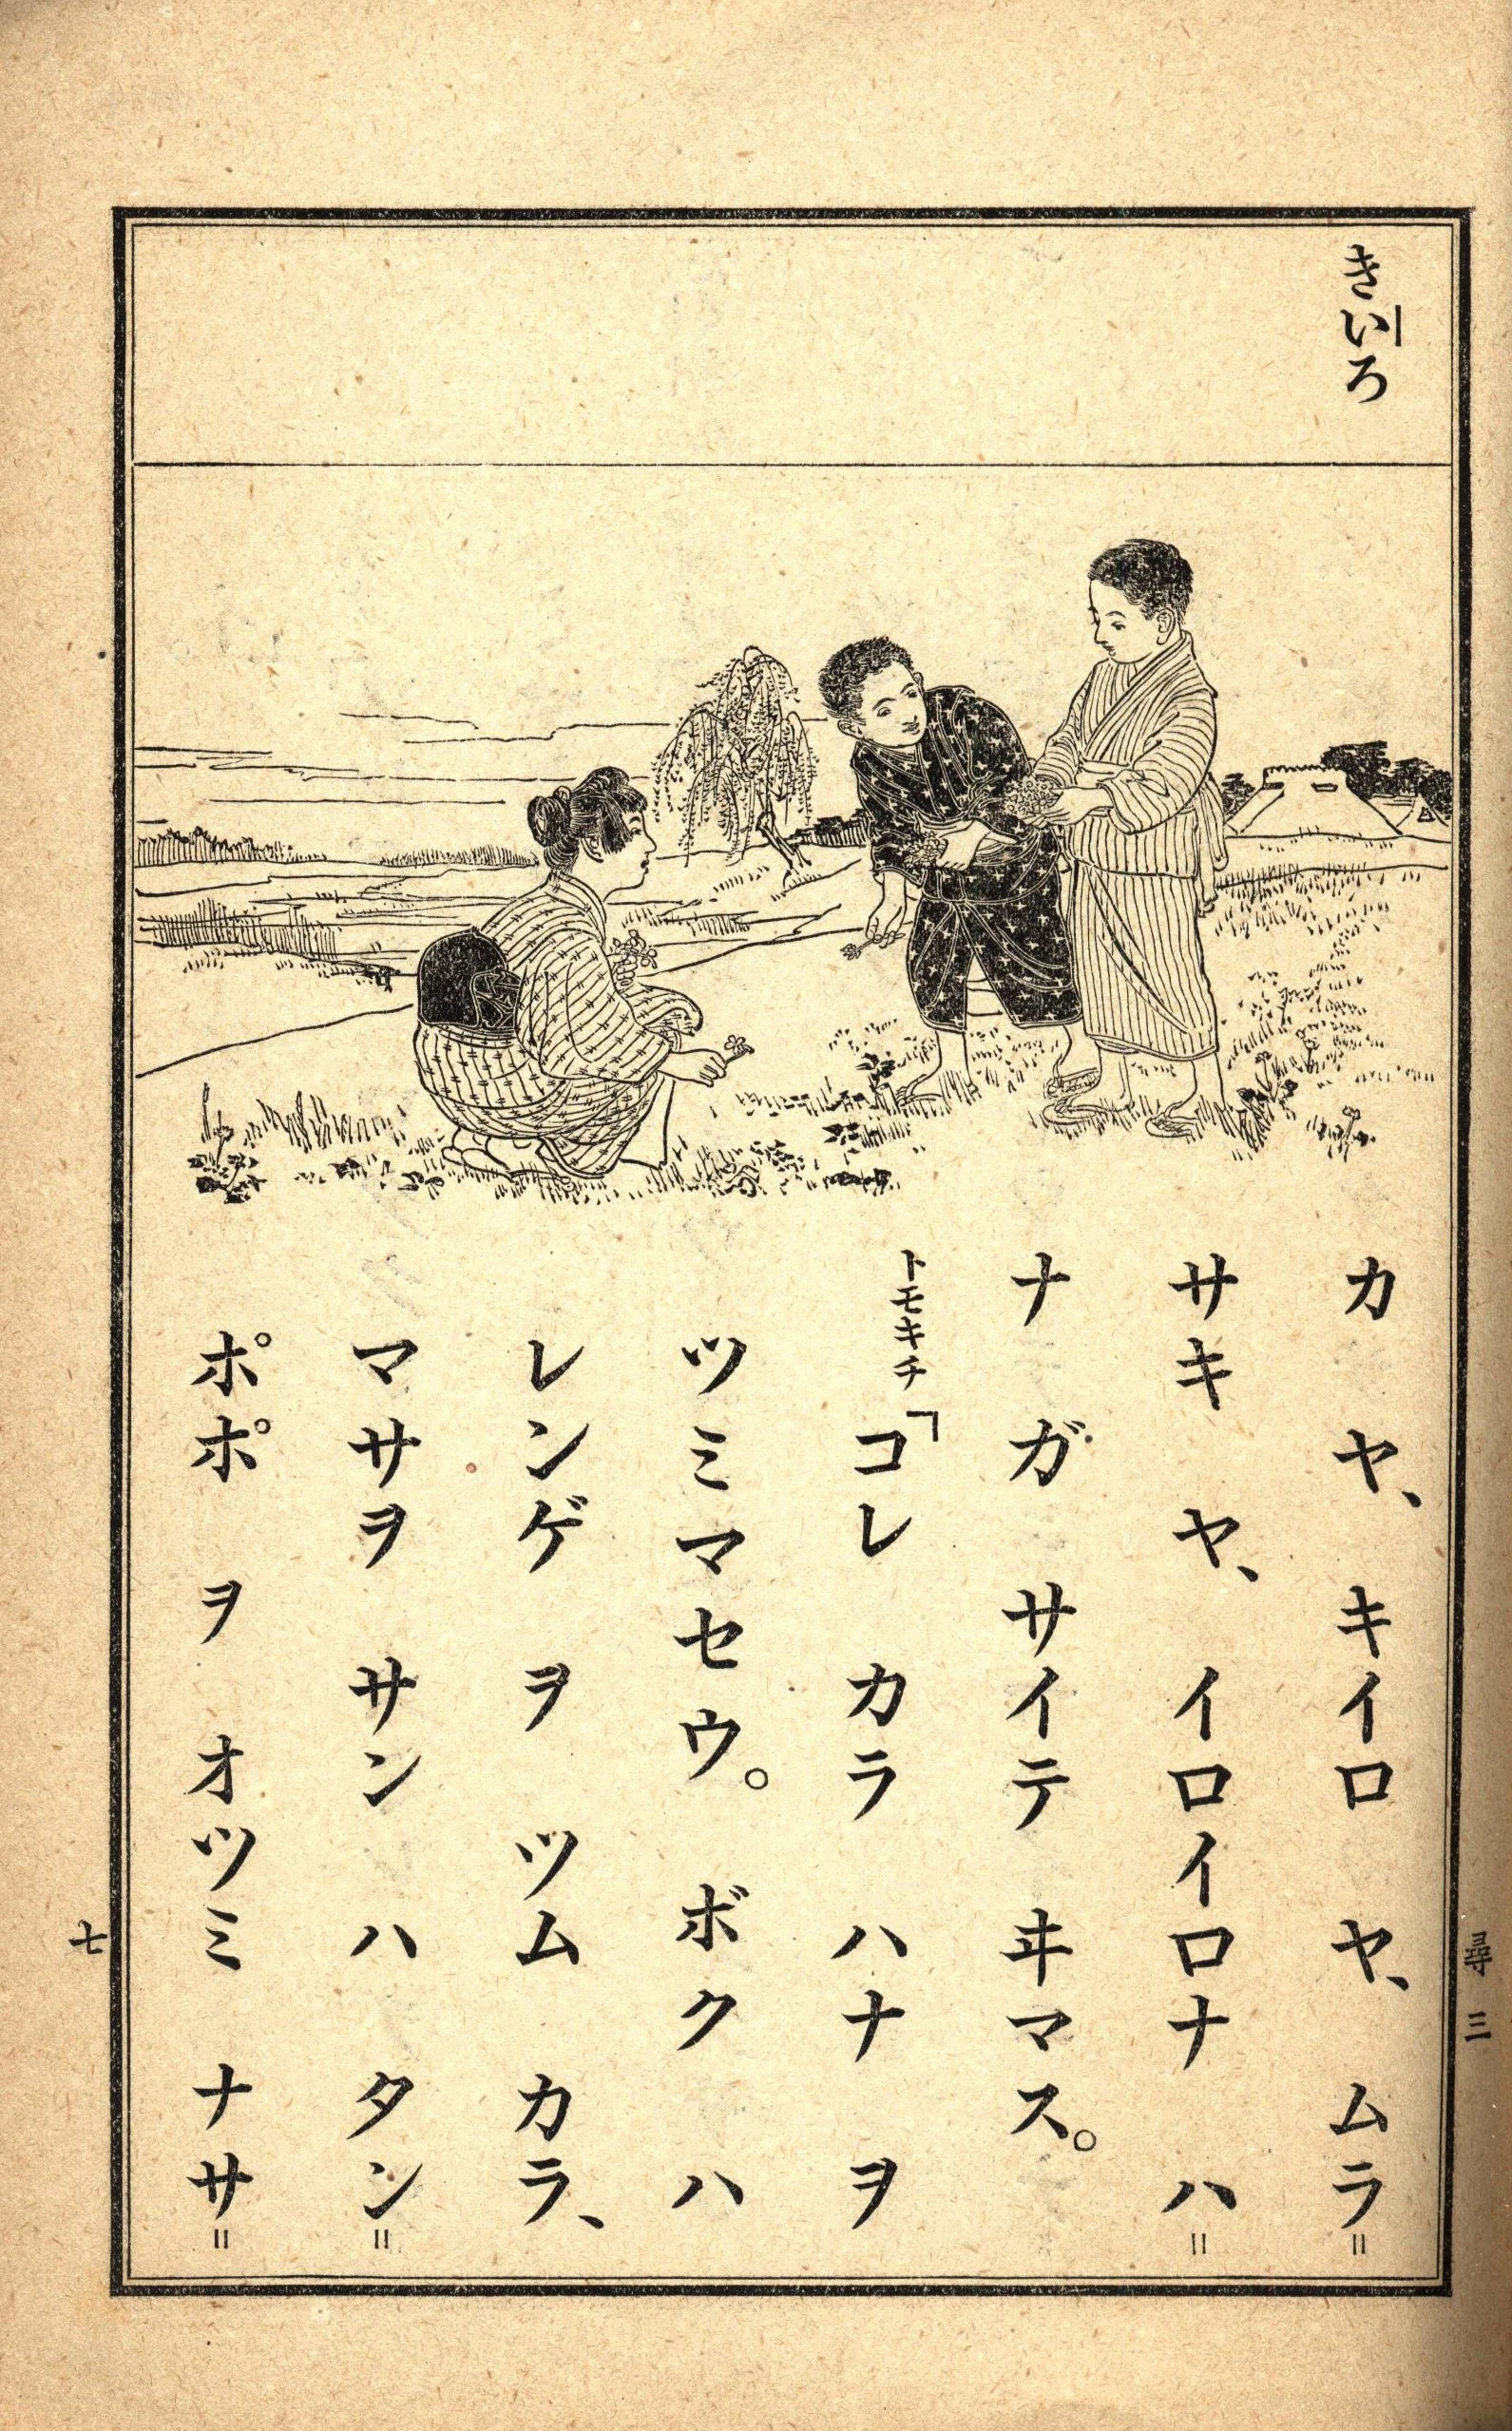 きいろ
カ ヤ、 キイロ ヤ、 ムラ＝
サキ ヤ、 イロイロナ ハ＝
ナ ガ サイテ ヰマス。
トモキチ「コレ カラ ハナ ヲ
ツミマセウ。 ボク ハ
レンゲ ヲ ツム カラ、
マサヲ サン ハ タン＝
ポポ ヲ オツミ ナサ＝
尋三
七